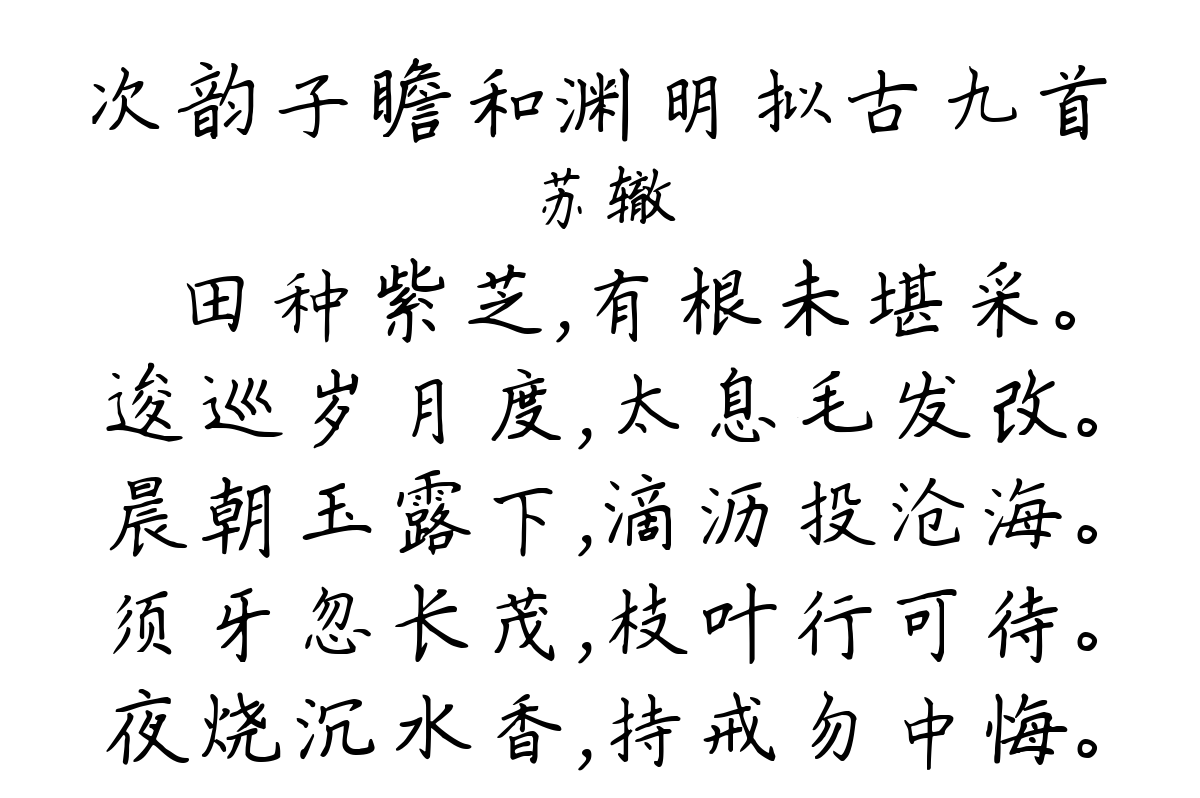 次韵子瞻和渊明拟古九首
苏辙
田种紫芝,有根未堪采。
逡巡岁月度,太息毛发改。
晨朝玉露下,滴沥投沧海。
须牙忽长茂,枝叶行可待。
夜烧沉水香,持戒勿中悔。